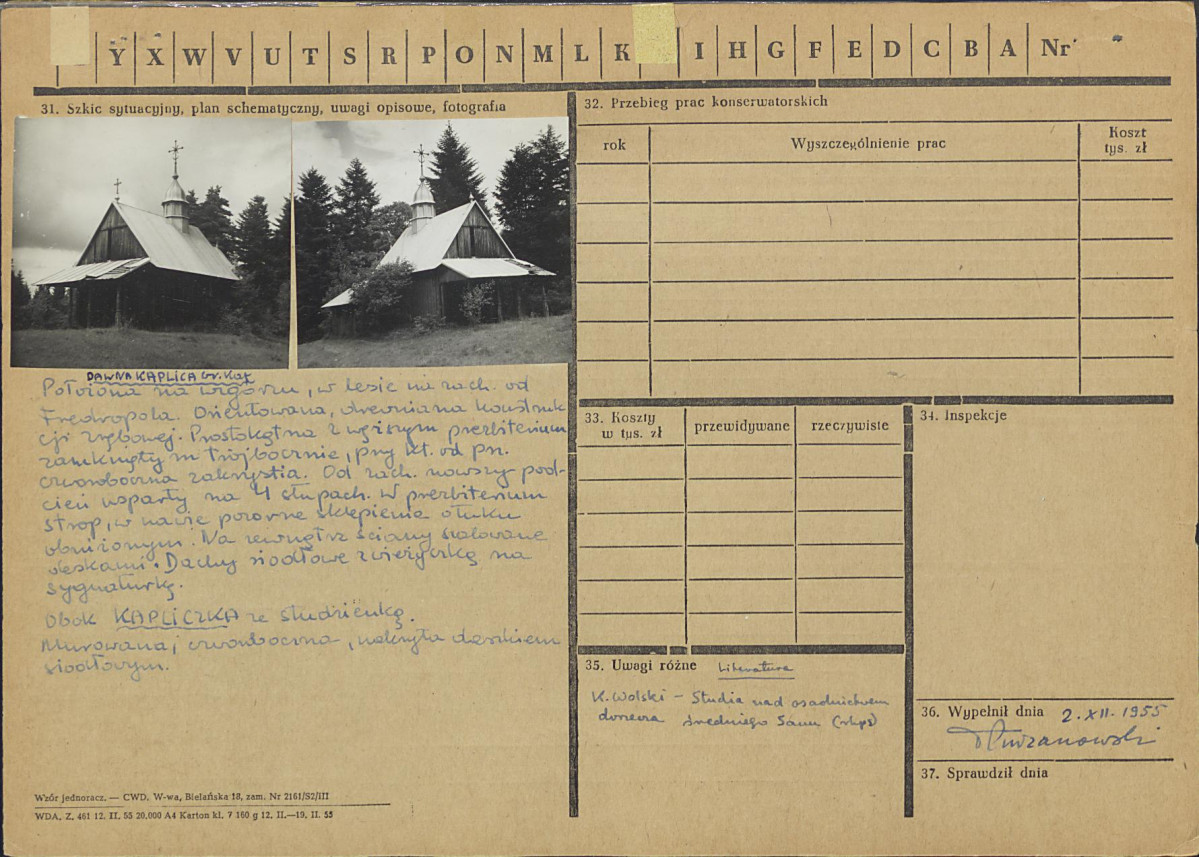 Y X W V U T S R P O N M L K I H G F E D C B A Nr
31. Szkic sytuacyjny, plan schematyczny, uwagi opisowe, fotografia
DAWNA KAPLICA Gr. Kat.
Położona na wzgórzu, w lesie na zach. od
Fredropola. Orientowana, drewniana konstruk
cji zrębowej. Prostokątna z węższym prezbiterium
zamkniętym trójbocznie, przy kt. od pn.
czworoboczna zakrystia. Od zach. nowszy pod-
cień wsparty na 4 słupach. W prezbiterium
strop, w nawie pozorne sklepienie o łuku
obniżonym. Na zewnątrz ściany szalowane
deskami. Dachy siodłowe z wieżyczką na
sygnaturkę.
Obok KAPLICZKA ze studzienką.
Murowana, czworoboczna, nakryta daszkiem
siodłowym.
Wzór jednoracz. — CWD. W-wa, Bielańska 18, zam. Nr 2161/S2/III
WDA. Z. 461 12. II. 55 20.000 A4 Karton kl. 7 160 g 12. II.—19. II. 55
32. Przebieg prac konserwatorskich
rok
Wyszczególnienie prac
Koszt
tys. zł
33. Koszty
w tys. zł
przewidywane
rzeczywiste
34. Inspekcje
35. Uwagi różne Literatura
K. Wolski – Studia nad osadnictwem
dorzecza średniego Sanu (rkps)
36. Wypełnił dnia 2.XII.1955
37. Sprawdził dnia